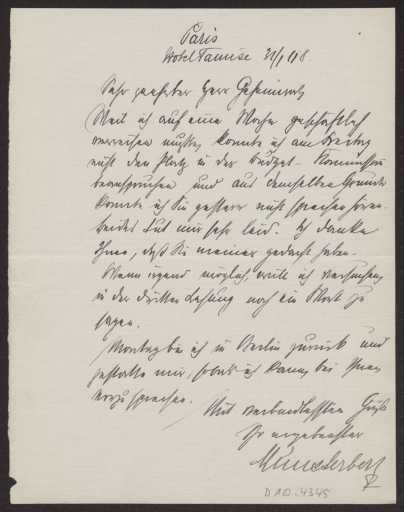 Paris
Hotel Tamise 31/1 08.
Sehr geehrter Herr Geheimrat,
Weil ich auf eine Woche geschäftlich
verreisen mußte, konnte ich am Freitag
nicht den Platz in der Budget-Kommission
beanspruchen und aus demselben Grunde
konnte ich Sie gestern nicht sprechen hören.
beides tut mir sehr leid. Ich danke
Ihnen, daß Sie meiner gedacht haben.
Wenn irgend möglich, will ich versuchen
in der dritten Lesung noch ein Wort zu
sagen.
Montag bin ich in Berlin zurück und
gestatte mir, sobald ich kann, bei Ihnen
vorzusprechen.
Mit verbindlichsten Grüße
Ihr ergebenster
Münsterberg
D A D. 4345